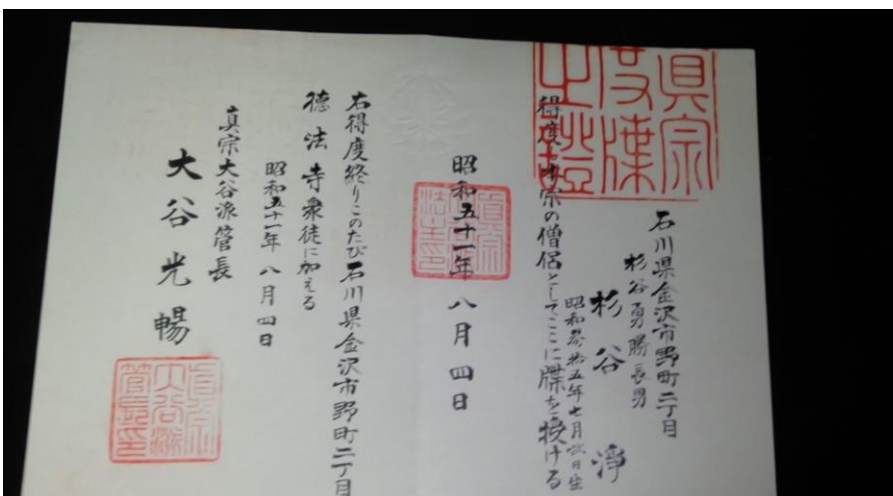 石川県金沢市野町二丁目
杉谷勇勝長男
杉谷淨
昭和参拾五年七月弐日生
得度し本宗の僧侶としてここに牒を授ける
昭和五十一年八月四日
右得度終りこのたび石川県金沢市野町二丁目
徳法寺衆徒に加える
昭和五十一年八月四日
真宗大谷派管長
大谷光暢
真宗
度牒
之證
真宗
大谷派
管長印